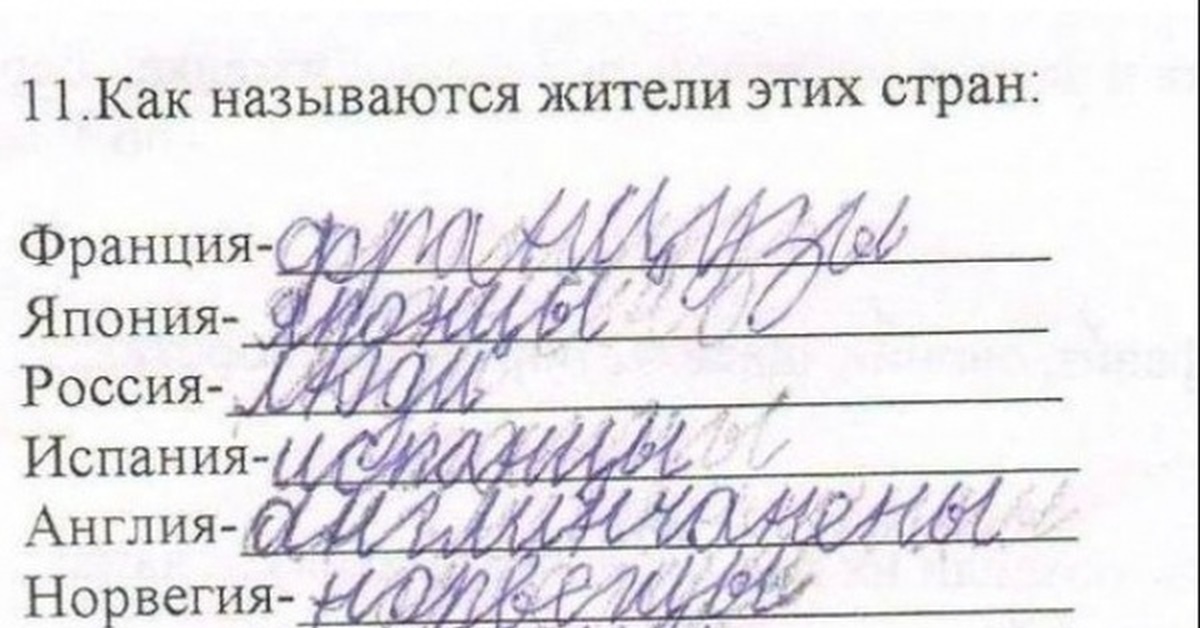 11.Как называются жители этих стран:
Франция-французы
Япония-японцы
Россия-люди
Испания-испанцы
Англия-англинчанены
Норвегия-норвегцы